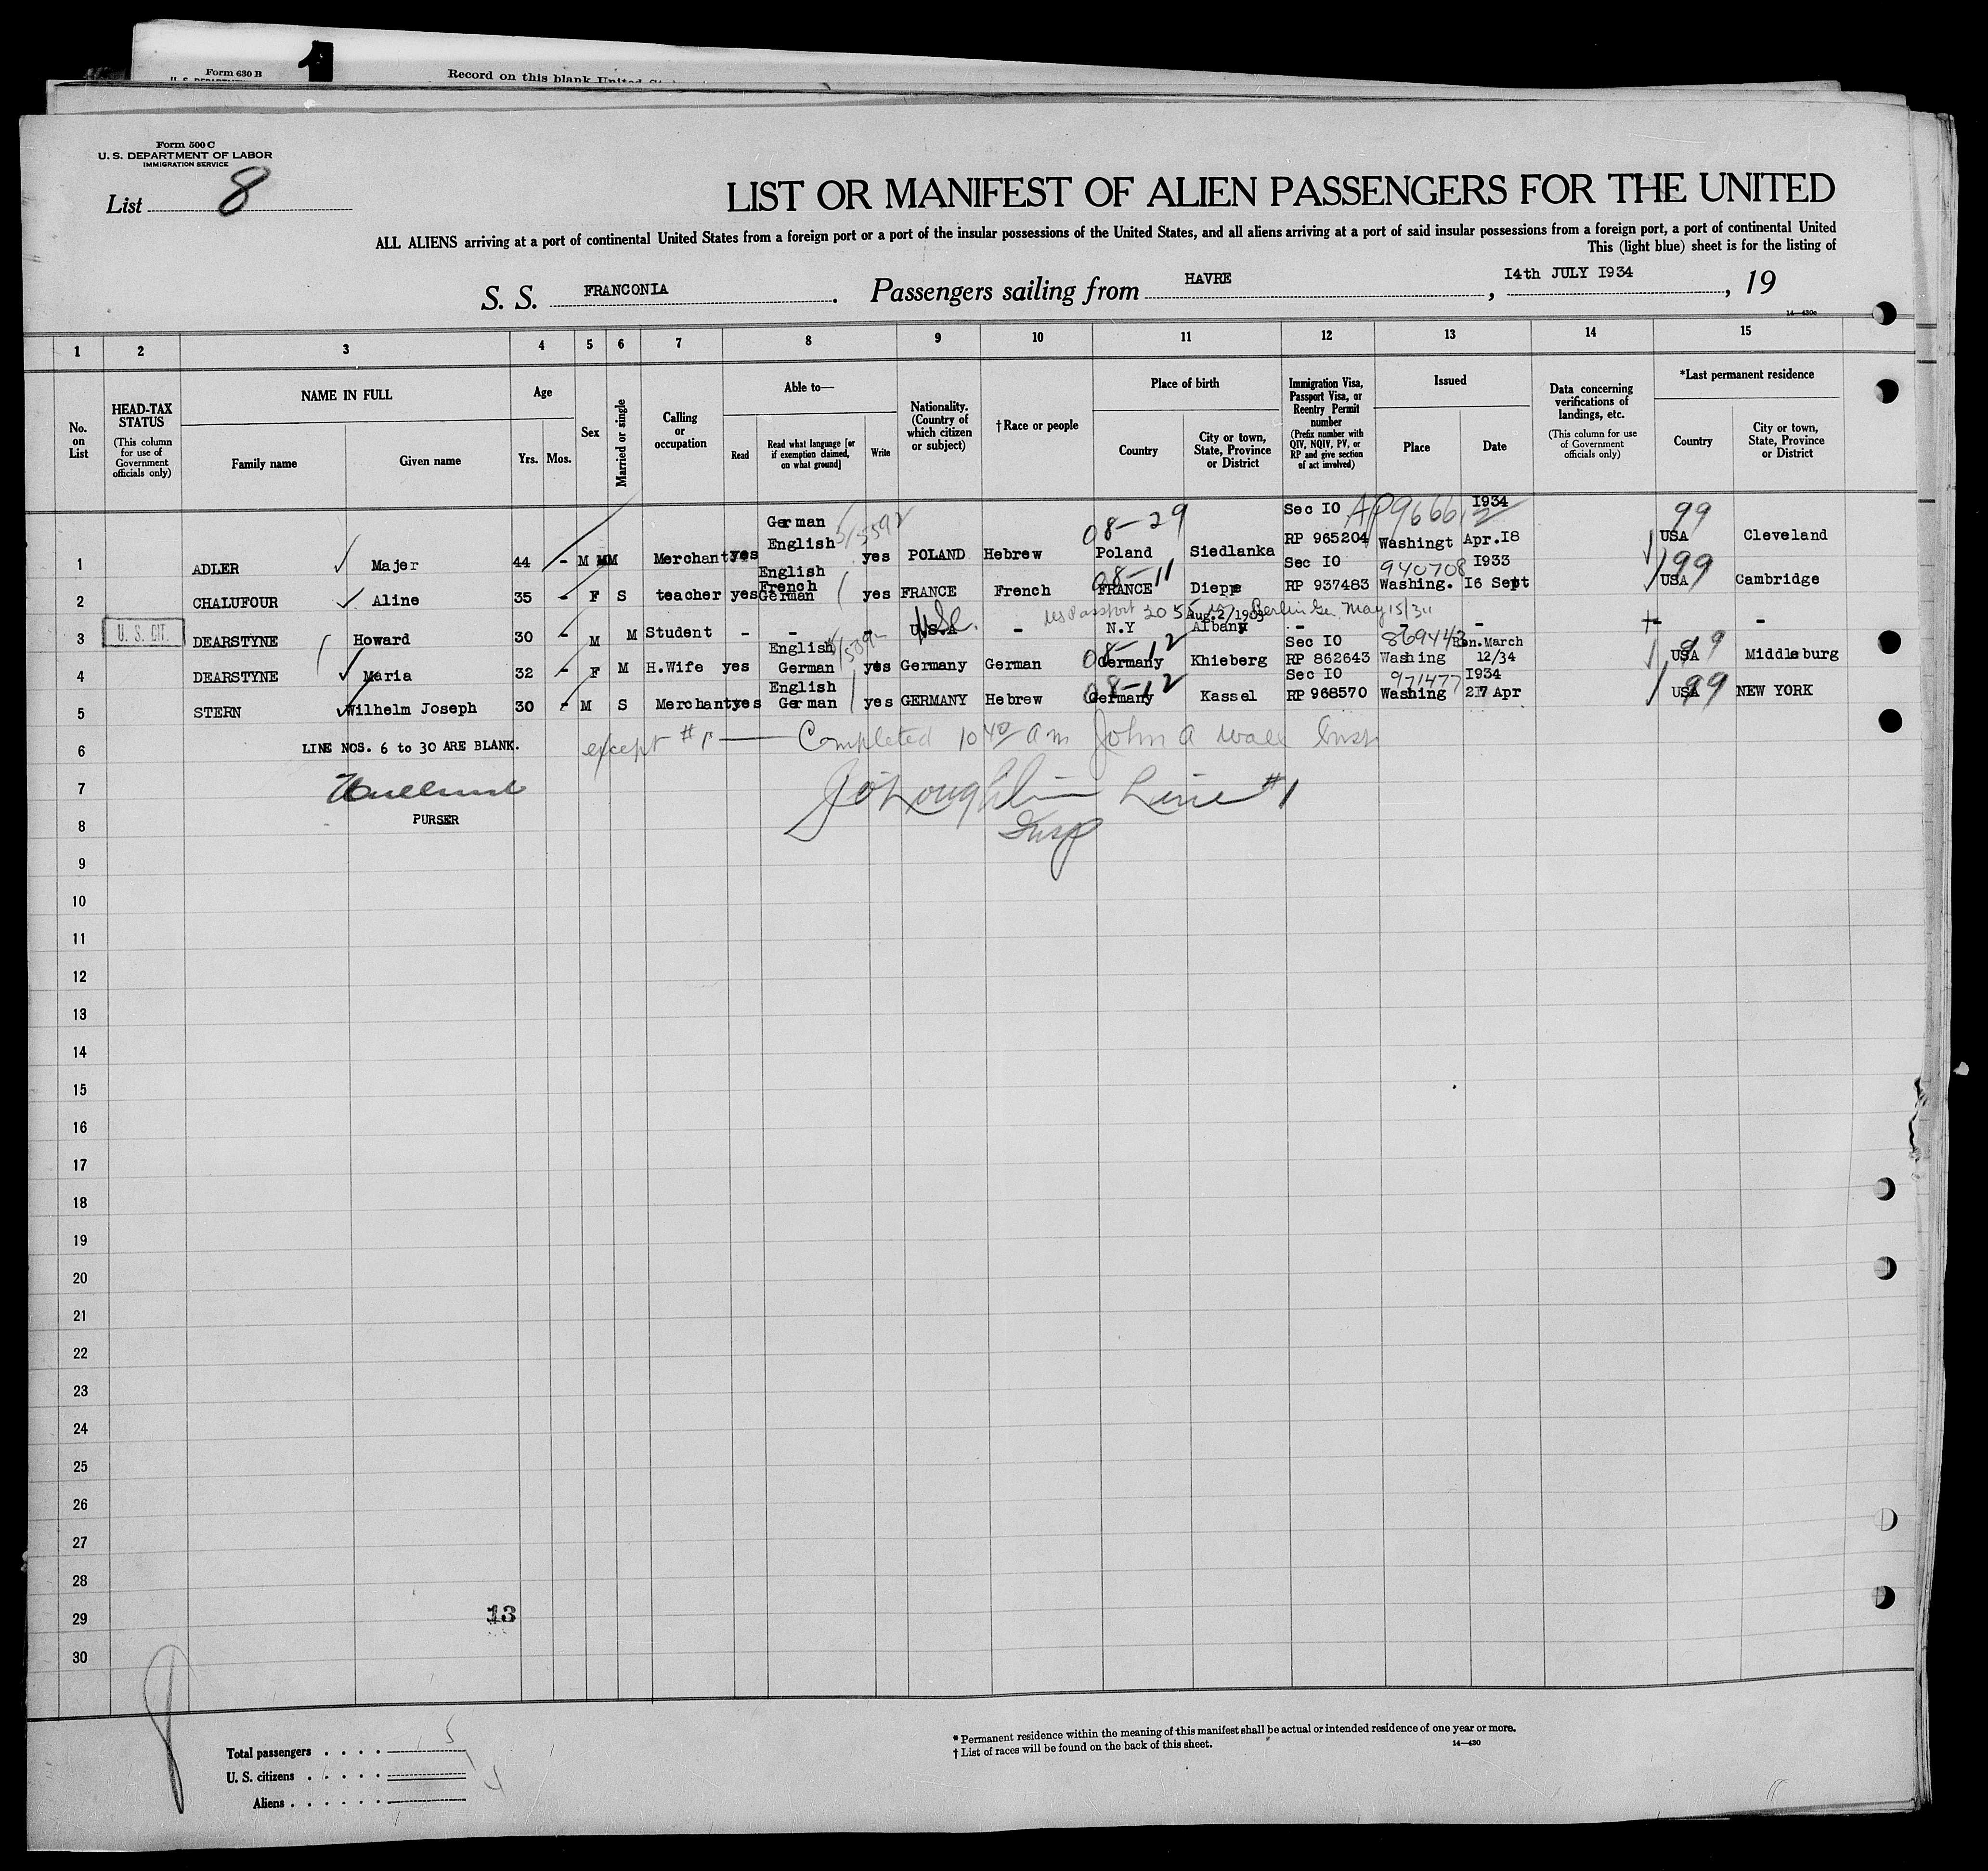 Form 630 B
Record on this blank United
Form 500 C
U. S. DEPARTMENT OF LABOR
IMMIGRATION SERVICE
List 8
LIST OR MANIFEST OF ALIEN PASSENGERS FOR THE UNITED
ALL ALIENS arriving at a port of continental United States from a foreign port or a port of the insular possessions of the United States, and all aliens arriving at a port of said insular possessions from a foreign port, a port of continental United
This (light blue) sheet is for the listing of
S. S. FRANCONIA. Passengers sailing from HAVRE, 14th JULY 1934, 19
14—430c
1 2 3 4 5 6 7 8 9 10 11 12 13 14 15
No. on List
HEAD-TAX STATUS (This column for use of Government officials only)
NAME IN FULL
Family name Given name
Age
Yrs. Mos.
Sex
Married or single
Calling or occupation
Able to—
Read Read what language [or if exemption claimed, on what ground] Write
Nationality. (Country of which citizen or subject)
† Race or people
Place of birth
Country City or town, State, Province or District
Immigration Visa, Passport Visa, or Reentry Permit number (Prefix number with QIV, NQIV, PV, or RP and give section of act involved)
Issued
Place Date
Data concerning verifications of landings, etc. (This column for use of Government officials only)
*Last permanent residence
Country City or town, State, Province or District
1 ADLER Majer 44 - M M Merchant yes German English yes POLAND Hebrew 08-29 Poland Siedlanka Sec IO RP 965204 Washingt 1934 Apr.18 99 USA Cleveland
2 CHALUFOUR Aline 35 - F S teacher yes English French German yes FRANCE French 08-11 FRANCE Dieppe Sec IO RP 937483 940708 Washing. 1933 16 Sept 99 USA Cambridge
3 U. S. CIT. DEARSTYNE Howard 30 - M M Student - - - U.S.A - US Passport Aug.2/1903 Berlin Ger. May 15/31 N.Y Albany - - - - -
4 DEARSTYNE Maria 32 - F M H.Wife yes English German yes Germany German 08-12 Germany Khieberg Sec IO RP 862643 869443 Washing March 12/34 99 USA Middleburg
5 STERN Wilhelm Joseph 30 - M S Merchant yes English German yes GERMANY Hebrew 08-12 Germany Kassel Sec IO RP 968570 971477 Washing 1934 27 Apr 99 USA NEW YORK
6 LINE NOS. 6 to 30 ARE BLANK. except #1 — Completed 10 40 am John A Wall Insp
7 J O'Loughlin Line #1
Insp
8 PURSER
9
10
11
12
13
14
15
16
17
18
19
20
21
22
23
24
25
26
27
28
29 13
30
Total passengers . . . . 5
U. S. citizens . . . . . 1
Aliens . . . . . . 4
* Permanent residence within the meaning of this manifest shall be actual or intended residence of one year or more.
† List of races will be found on the back of this sheet.
14—430